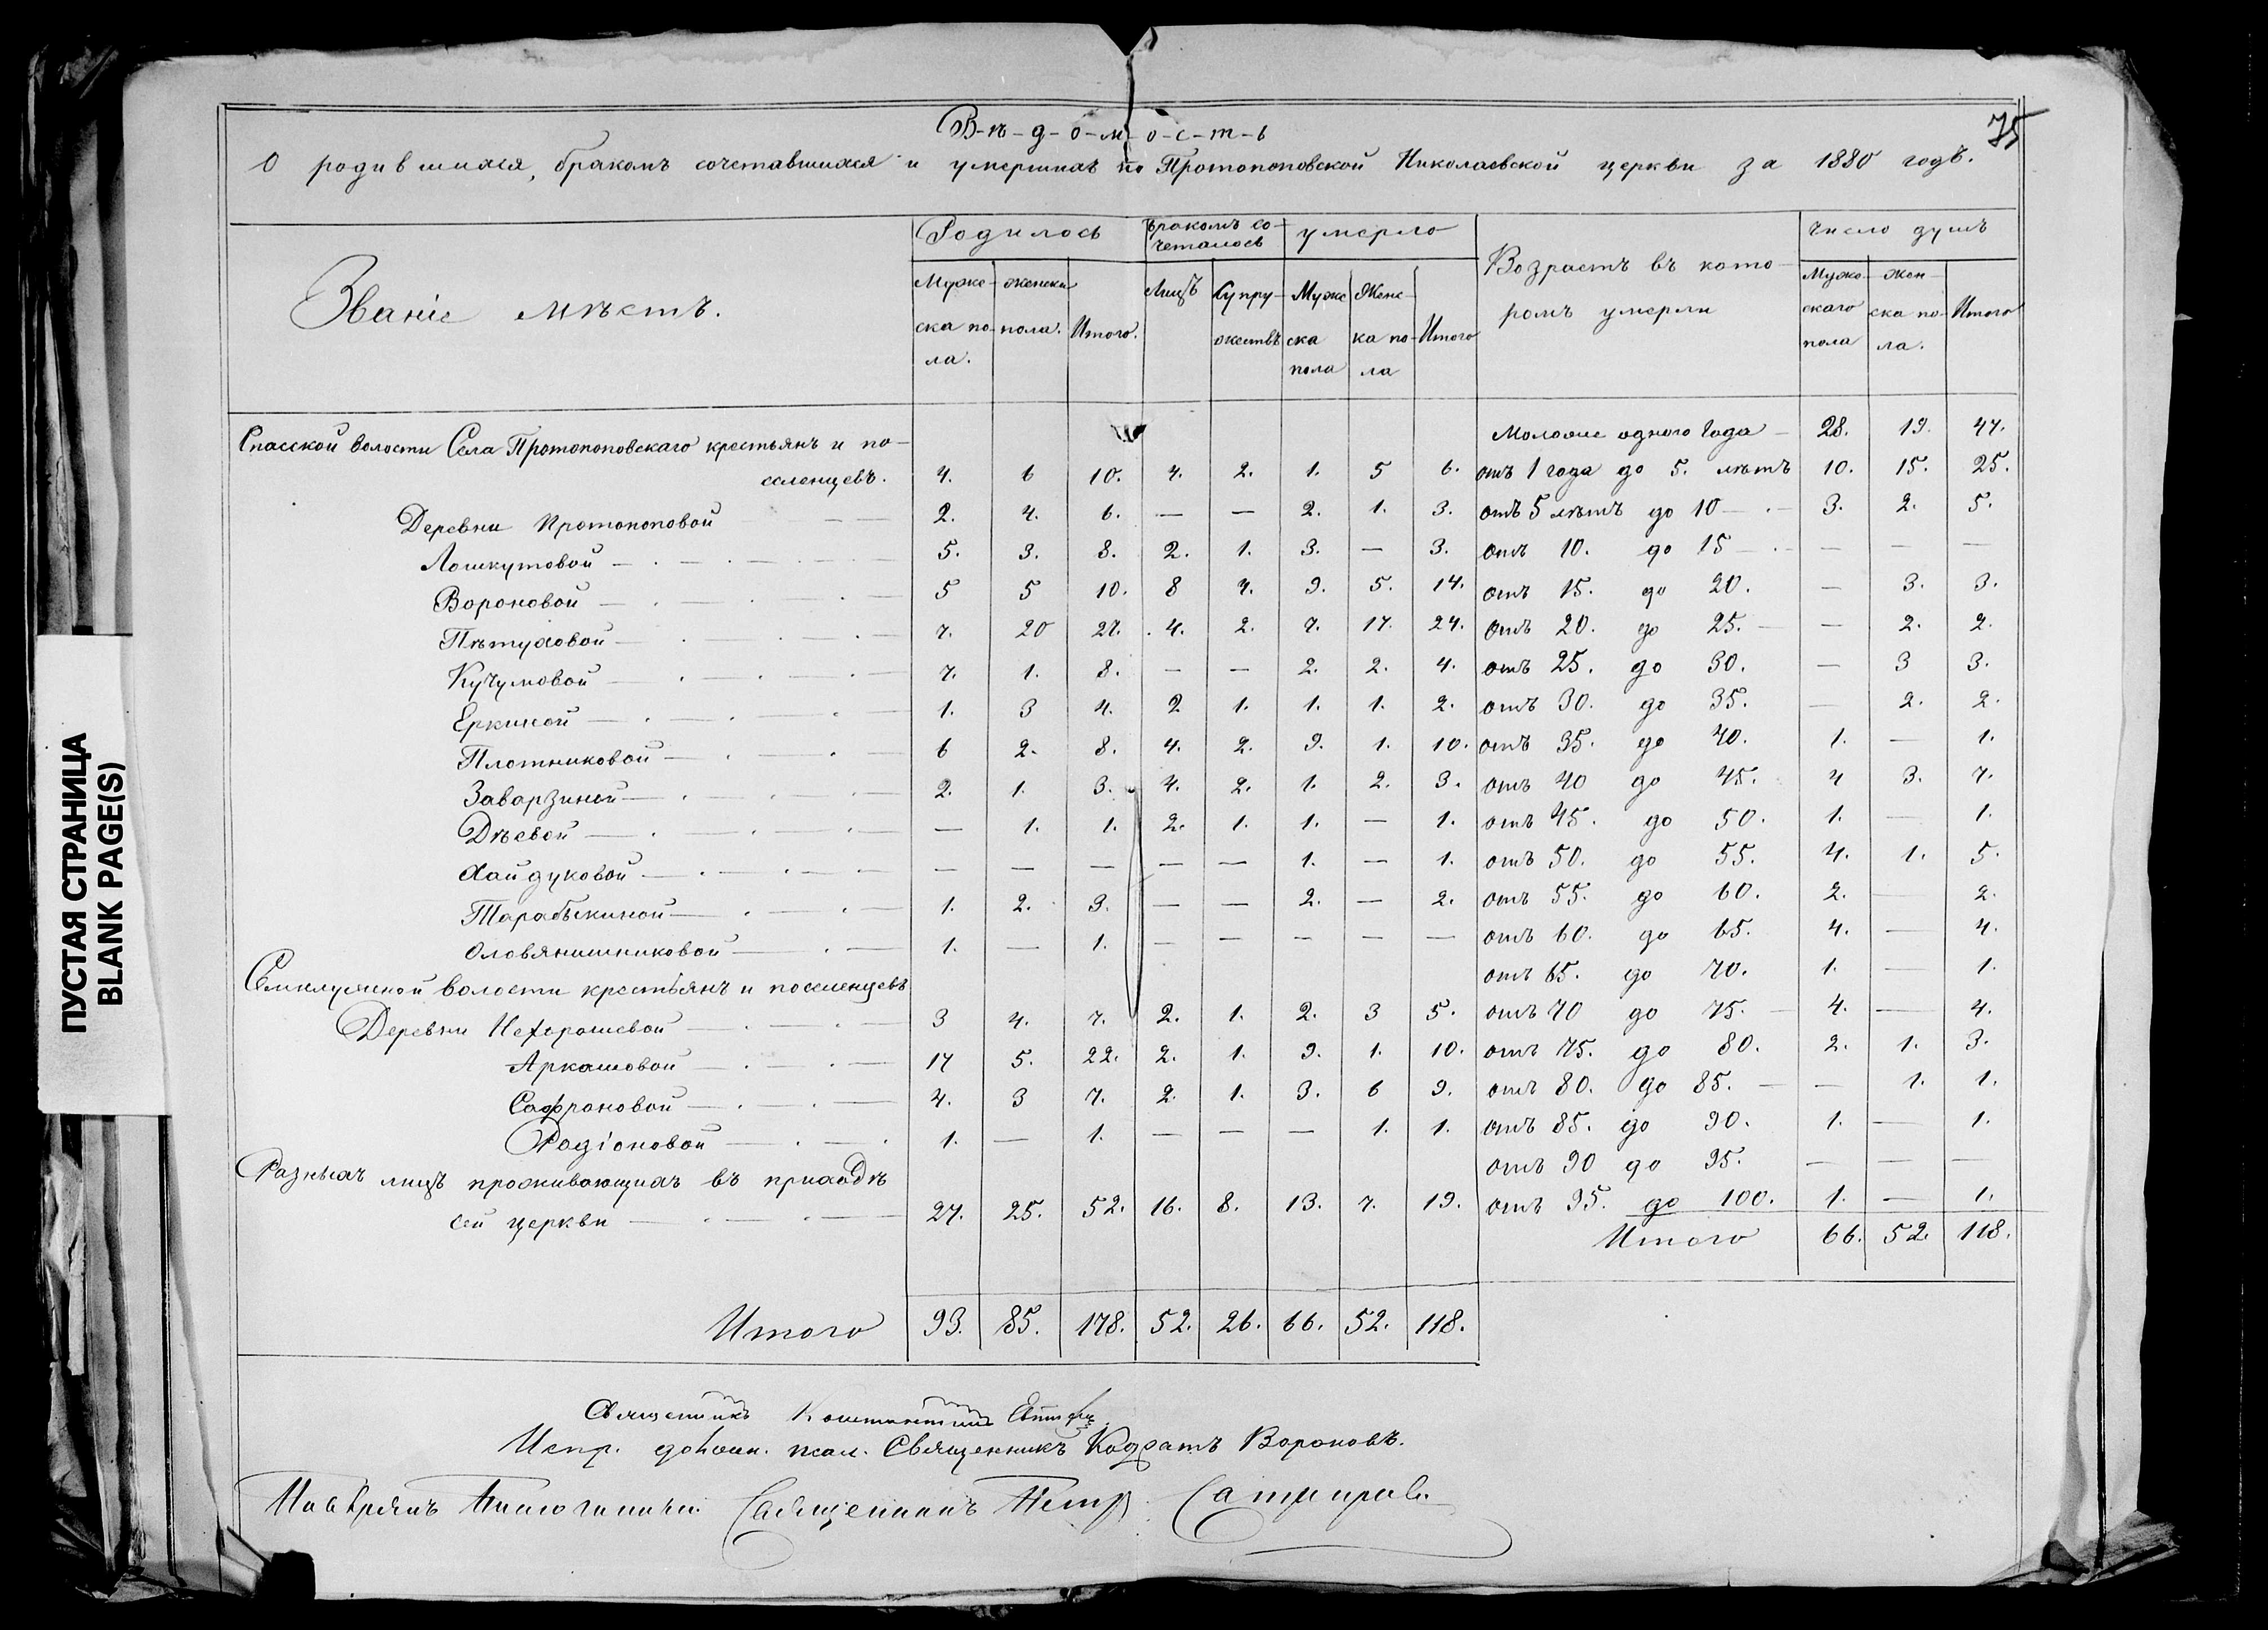 75
В-ѣ-д-о-м-о-с-т-ь
О родившихся, бракомъ сочетавшихся и умершихъ по Протопоповской Николаевской церкви за 1880 годъ.
Званіе мѣстъ. Родилось Бракомъ со-четалось умерло Возрастъ въ кото-ромъ умерли Число душъ
Мужс-ска по-ла. женска пола. Итого. Лицъ Супру-жествъ Мужс ска пола Женс-ка по-ла Итого Мужс-скаго пола Жен-ска по-ла. Итого
Спасской волости Села Протопоповскаго крестьянъ и по- Моложе одного Года — 28. 19. 47.
селенцевъ. 4. 6 10. 4. 2. 1. 5 6. отъ 1 года до 5. лѣтъ 10. 15. 25.
Деревни Протопоповой — — 2. 4. 6. — — 2. 1. 3. отъ 5 лѣтъ до 10 — 3. 2. 5.
Лошкутовой — 5. 3. 8. 2. 1. 3. — 3. отъ 10. до 15 — — — —
Вороновой — 5 5 10. 8 4. 9. 5. 14. отъ 15. до 20. — 3. 3.
Пѣтуховой — 7. 20 27. 4. 2. 7. 17. 24. отъ 20. до 25. — — 2. 2.
Кучумовой — 7. 1. 8. — — 2. 2. 4. отъ 25. до 30. — 3 3.
Еркиной — 1. 3 4. 2 1. 1. 1. 2. отъ 30. до 35. — 2. 2.
Плотниковой — 6 2. 8. 4. 2. 9. 1. 10. отъ 35. до 40. 1. — 1.
Заварзиной — 2. 1. 3. 4. 2. 1. 2. 3. отъ 40 до 45. 4 3. 7.
Дѣевой — — 1. 1. 2. 1. 1. — 1. отъ 45. до 50. 1. — 1.
Хайдуковой — — — — — — 1. — 1. отъ 50. до 55. 4. 1. 5.
Тарабыкиной — 1. 2. 3. — — 2. — 2. отъ 55. до 60. 2. — 2.
Оловянишниковой — 1. — 1. — — — — — отъ 60. до 65. 4. — 4.
Семилужной волости крестьянъ и поселенцевъ отъ 65. до 70. 1. — 1.
Деревни Нехорошевой — 3 4. 7. 2. 1. 2. 3 5. отъ 70 до 75. — 4. — 4.
Аркашовой — 17 5. 22. 2. 1. 9. 1. 10. отъ 75. до 80. 2. 1. 3.
Сафроновой — 4. 3 7. 2. 1. 3. 6 9. отъ 80. до 85. — — 1. 1.
Родіоновой — 1. — 1. — — — 1. 1. отъ 85. до 90. 1. — 1.
Разныхъ лицъ проживающихъ въ приходѣ отъ 90 до 95. — — —
сей церкви — 27. 25. 52. 16. 8. 13. 7. 19. отъ 95. до 100. 1. — 1.
Итого 66. 52. 118.
Итого 93. 85. 178. 52. 26. 66. 52. 118.
Священникъ Константинъ
Испр. должн. псал. Священникъ Кодратъ Вороновъ.
Священникъ Петръ
ПУСТАЯ СТРАНИЦА
BLANK PAGE(S)